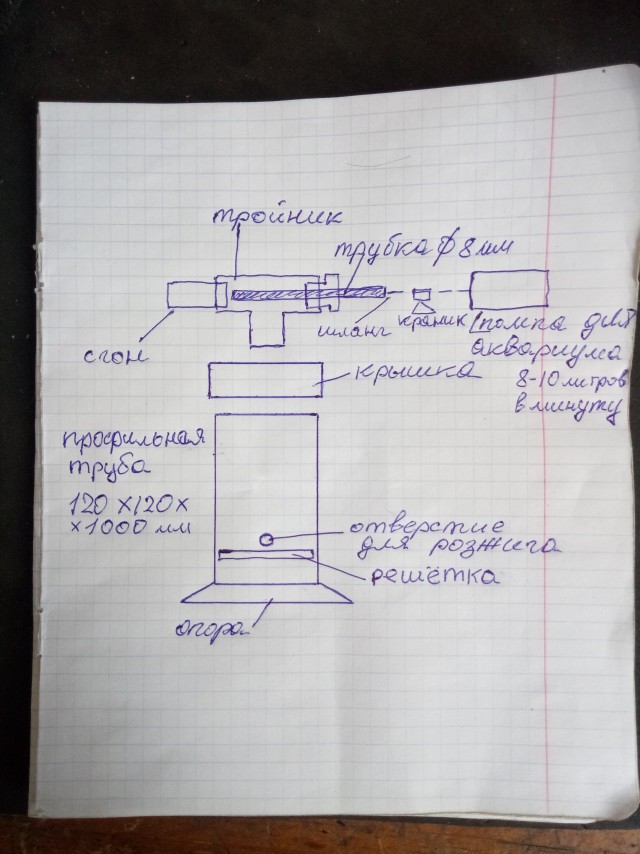 тройник
трубка ф 8 мм
сгон
шланг
краник
помпа для
аквариума
8-10 литров
в минуту
крышка
профильная
труба
120 х 120 х
х 1000 мм
отверстие
для розжига
решётка
опора